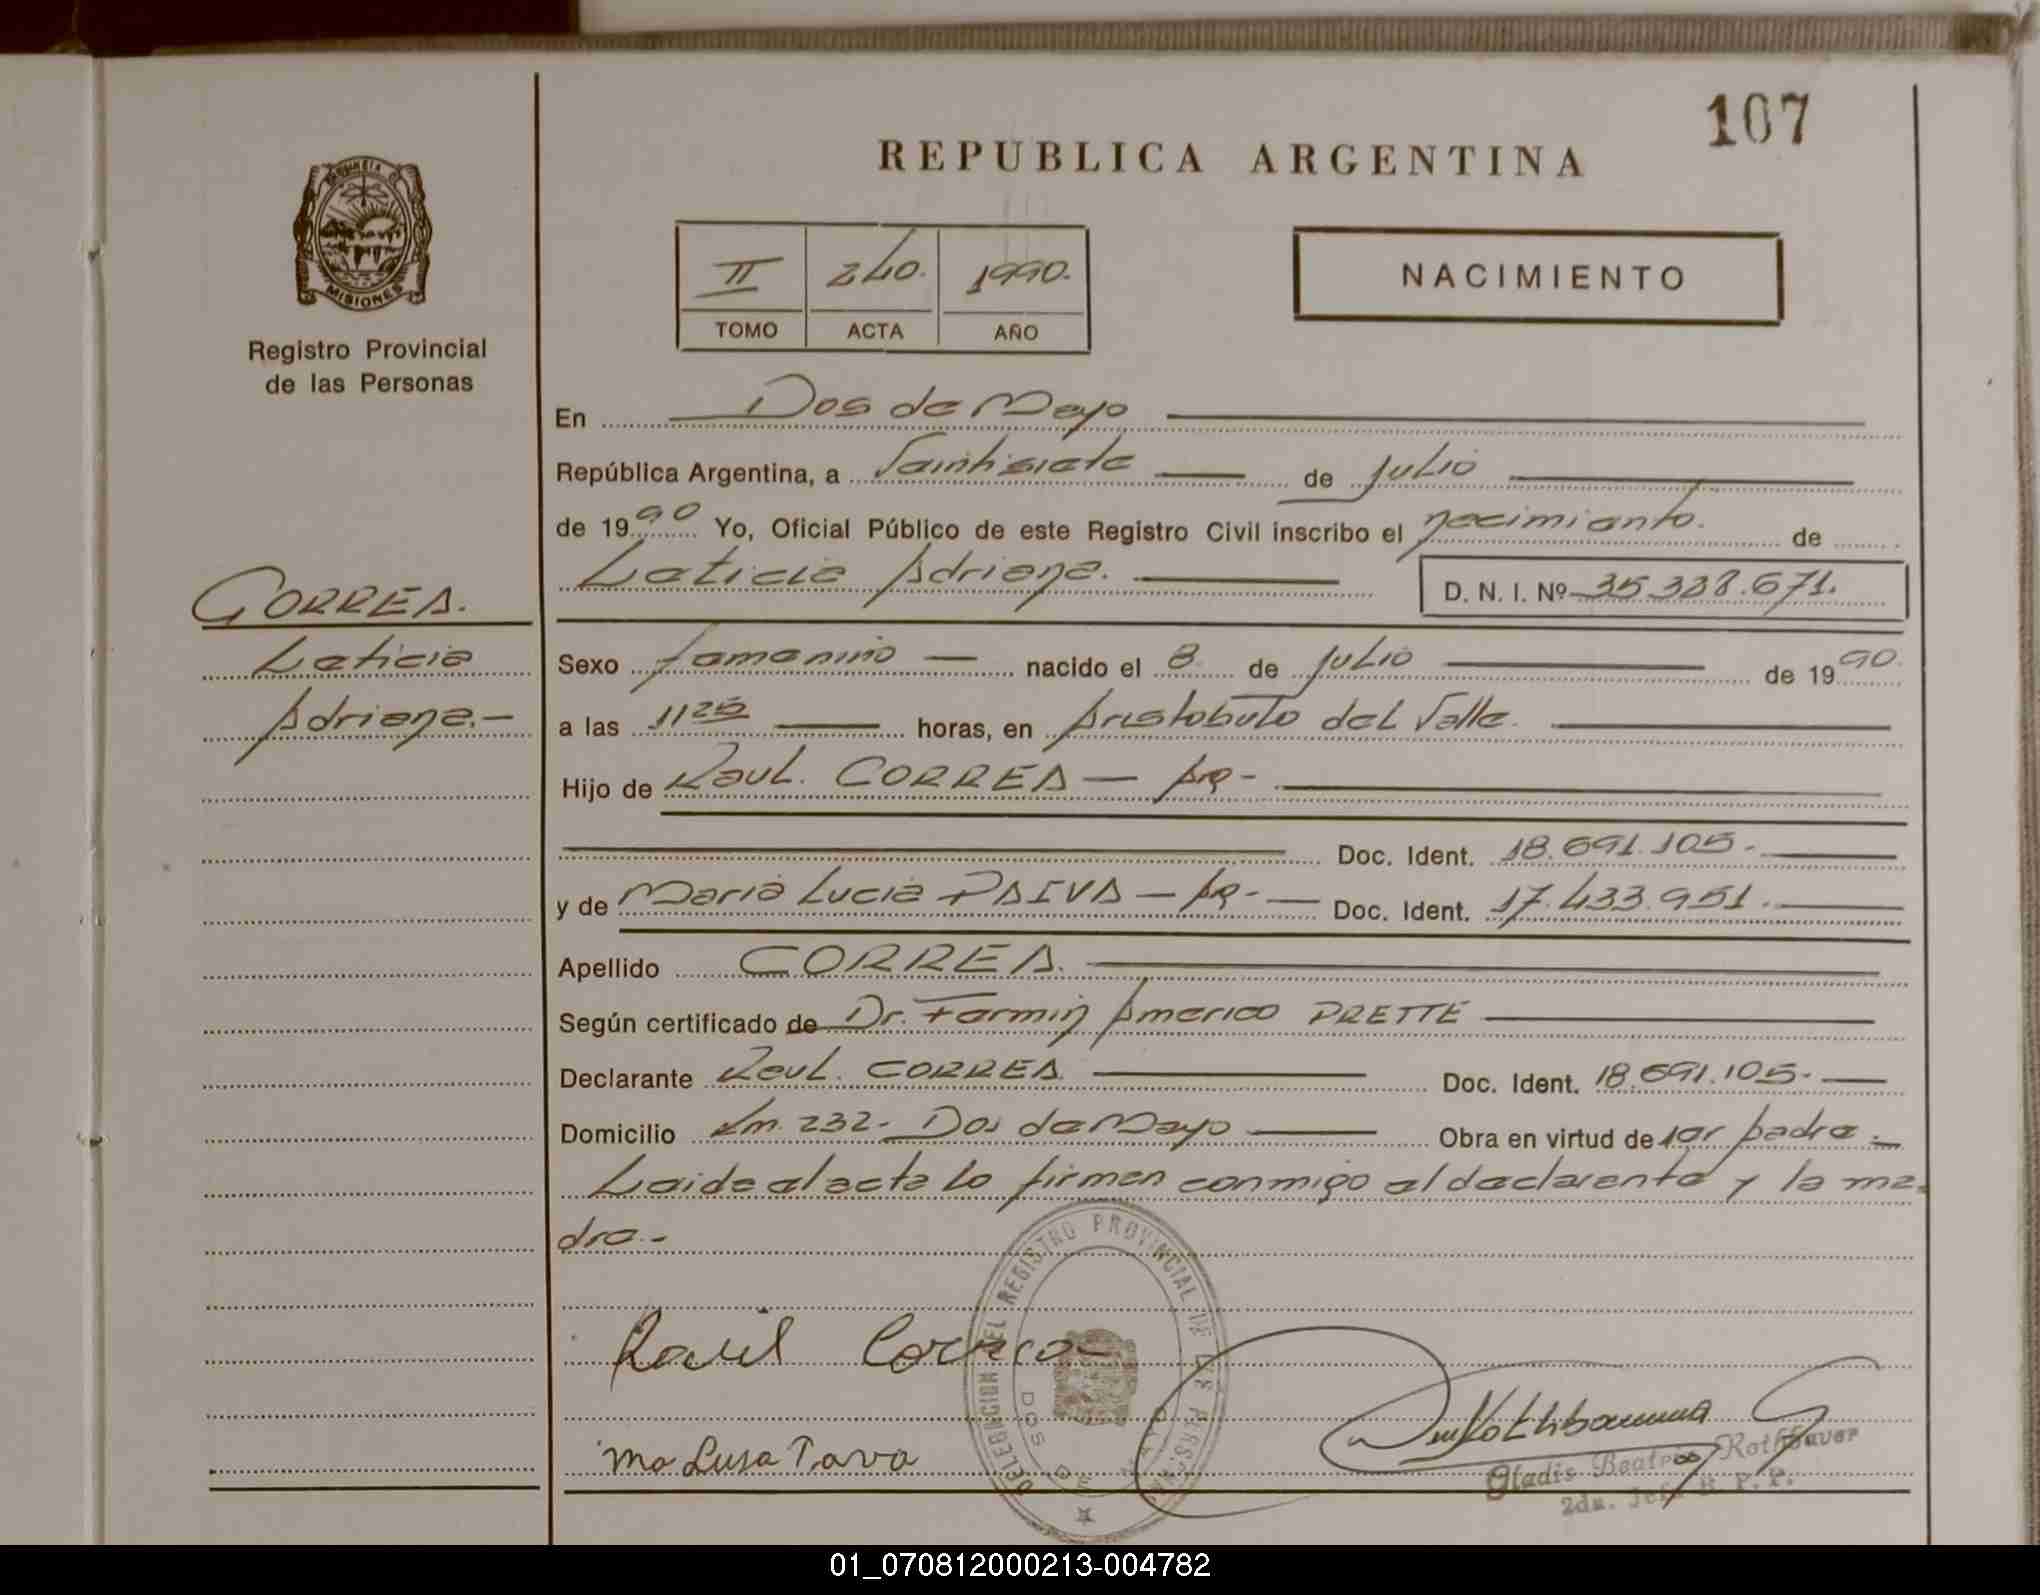 107
REPUBLICA ARGENTINA
PROVINCIA DE
MISIONES
Registro Provincial
de las Personas
II 240. 1990.
TOMO ACTA AÑO
NACIMIENTO
En Dos de Mayo
República Argentina, a Veintisiete de Julio
de 1990 Yo, Oficial Público de este Registro Civil inscribo el nacimiento. de
Leticia Adriana.
D. N. I. Nº 35.328.671.
CORREA.
Leticia
Adriana.-
Sexo femenino nacido el 8 de Julio de 1990.
a las 1125 horas, en Aristobulo del Valle.
Hijo de Raul. CORREA — Arg-
Doc. Ident. 18.691.105.
y de Maria Lucia PAIVA — Arg- Doc. Ident. 17.433.951.
Apellido CORREA.
Según certificado de Dr. Fermin Americo PRETTE
Declarante Raul. CORREA Doc. Ident. 18.691.105-
Domicilio Km. 232- Dos de Mayo Obra en virtud de ser padre.-
Leida el acta lo firman conmigo el declarante y la ma-
dre.-
Raul Correa
DELEGACION DEL REGISTRO PROVINCIAL DE LAS PERSONAS
DOS DE MAYO
Ma Lusa Pava
Gladis Beatriz Rothbauer
2da. Jefa R. P. P.
01_070812000213-004782